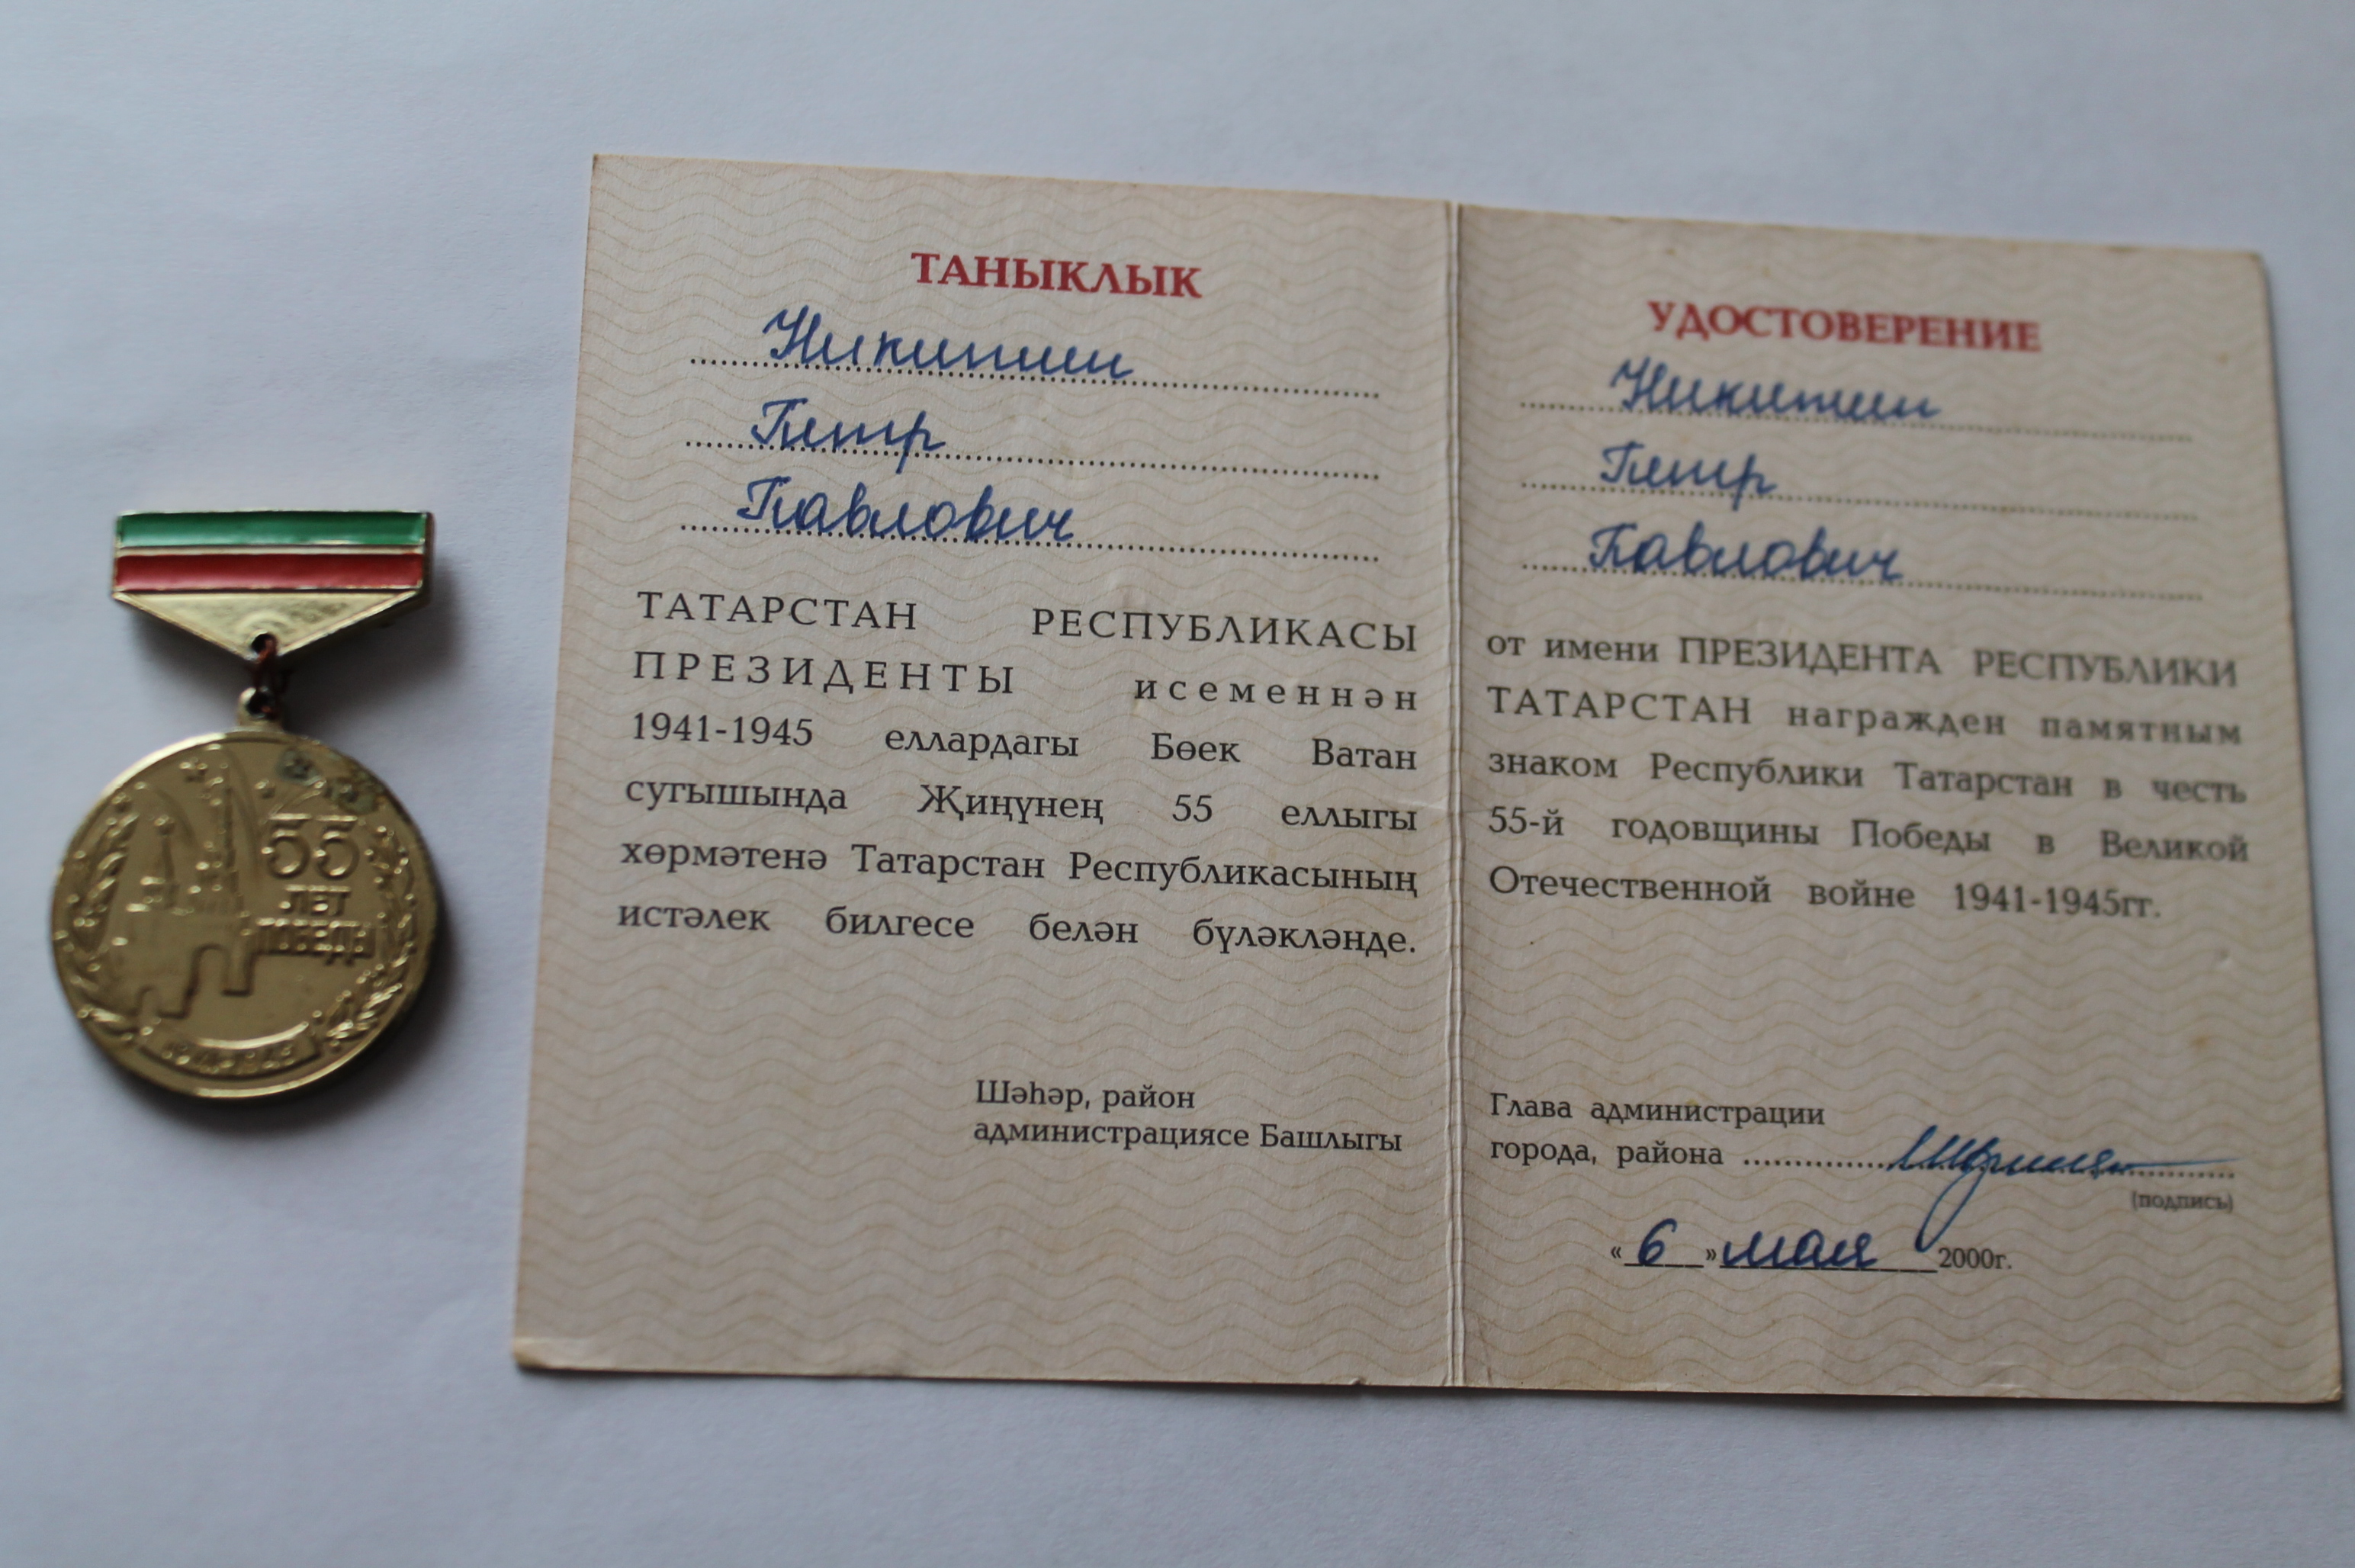 55
ЛЕТ
ПОБЕДЫ
1941-1945
ТАНЫКЛЫК
Никитин
Петр
Павлович
ТАТАРСТАН РЕСПУБЛИКАСЫ
ПРЕЗИДЕНТЫ исеменнән
1941-1945 еллардагы Бөек Ватан
сугышында Җиңүнең 55 еллыгы
хөрмәтенә Татарстан Республикасының
истәлек билгесе белән бүләкләнде.
Шәһәр, район
администрациясе Башлыгы
УДОСТОВЕРЕНИЕ
Никитин
Петр
Павлович
от имени ПРЕЗИДЕНТА РЕСПУБЛИКИ
ТАТАРСТАН награжден памятным
знаком Республики Татарстан в честь
55-й годовщины Победы в Великой
Отечественной войне 1941-1945гг.
Глава администрации
города, района
(подпись)
« 6 » мая 2000г.